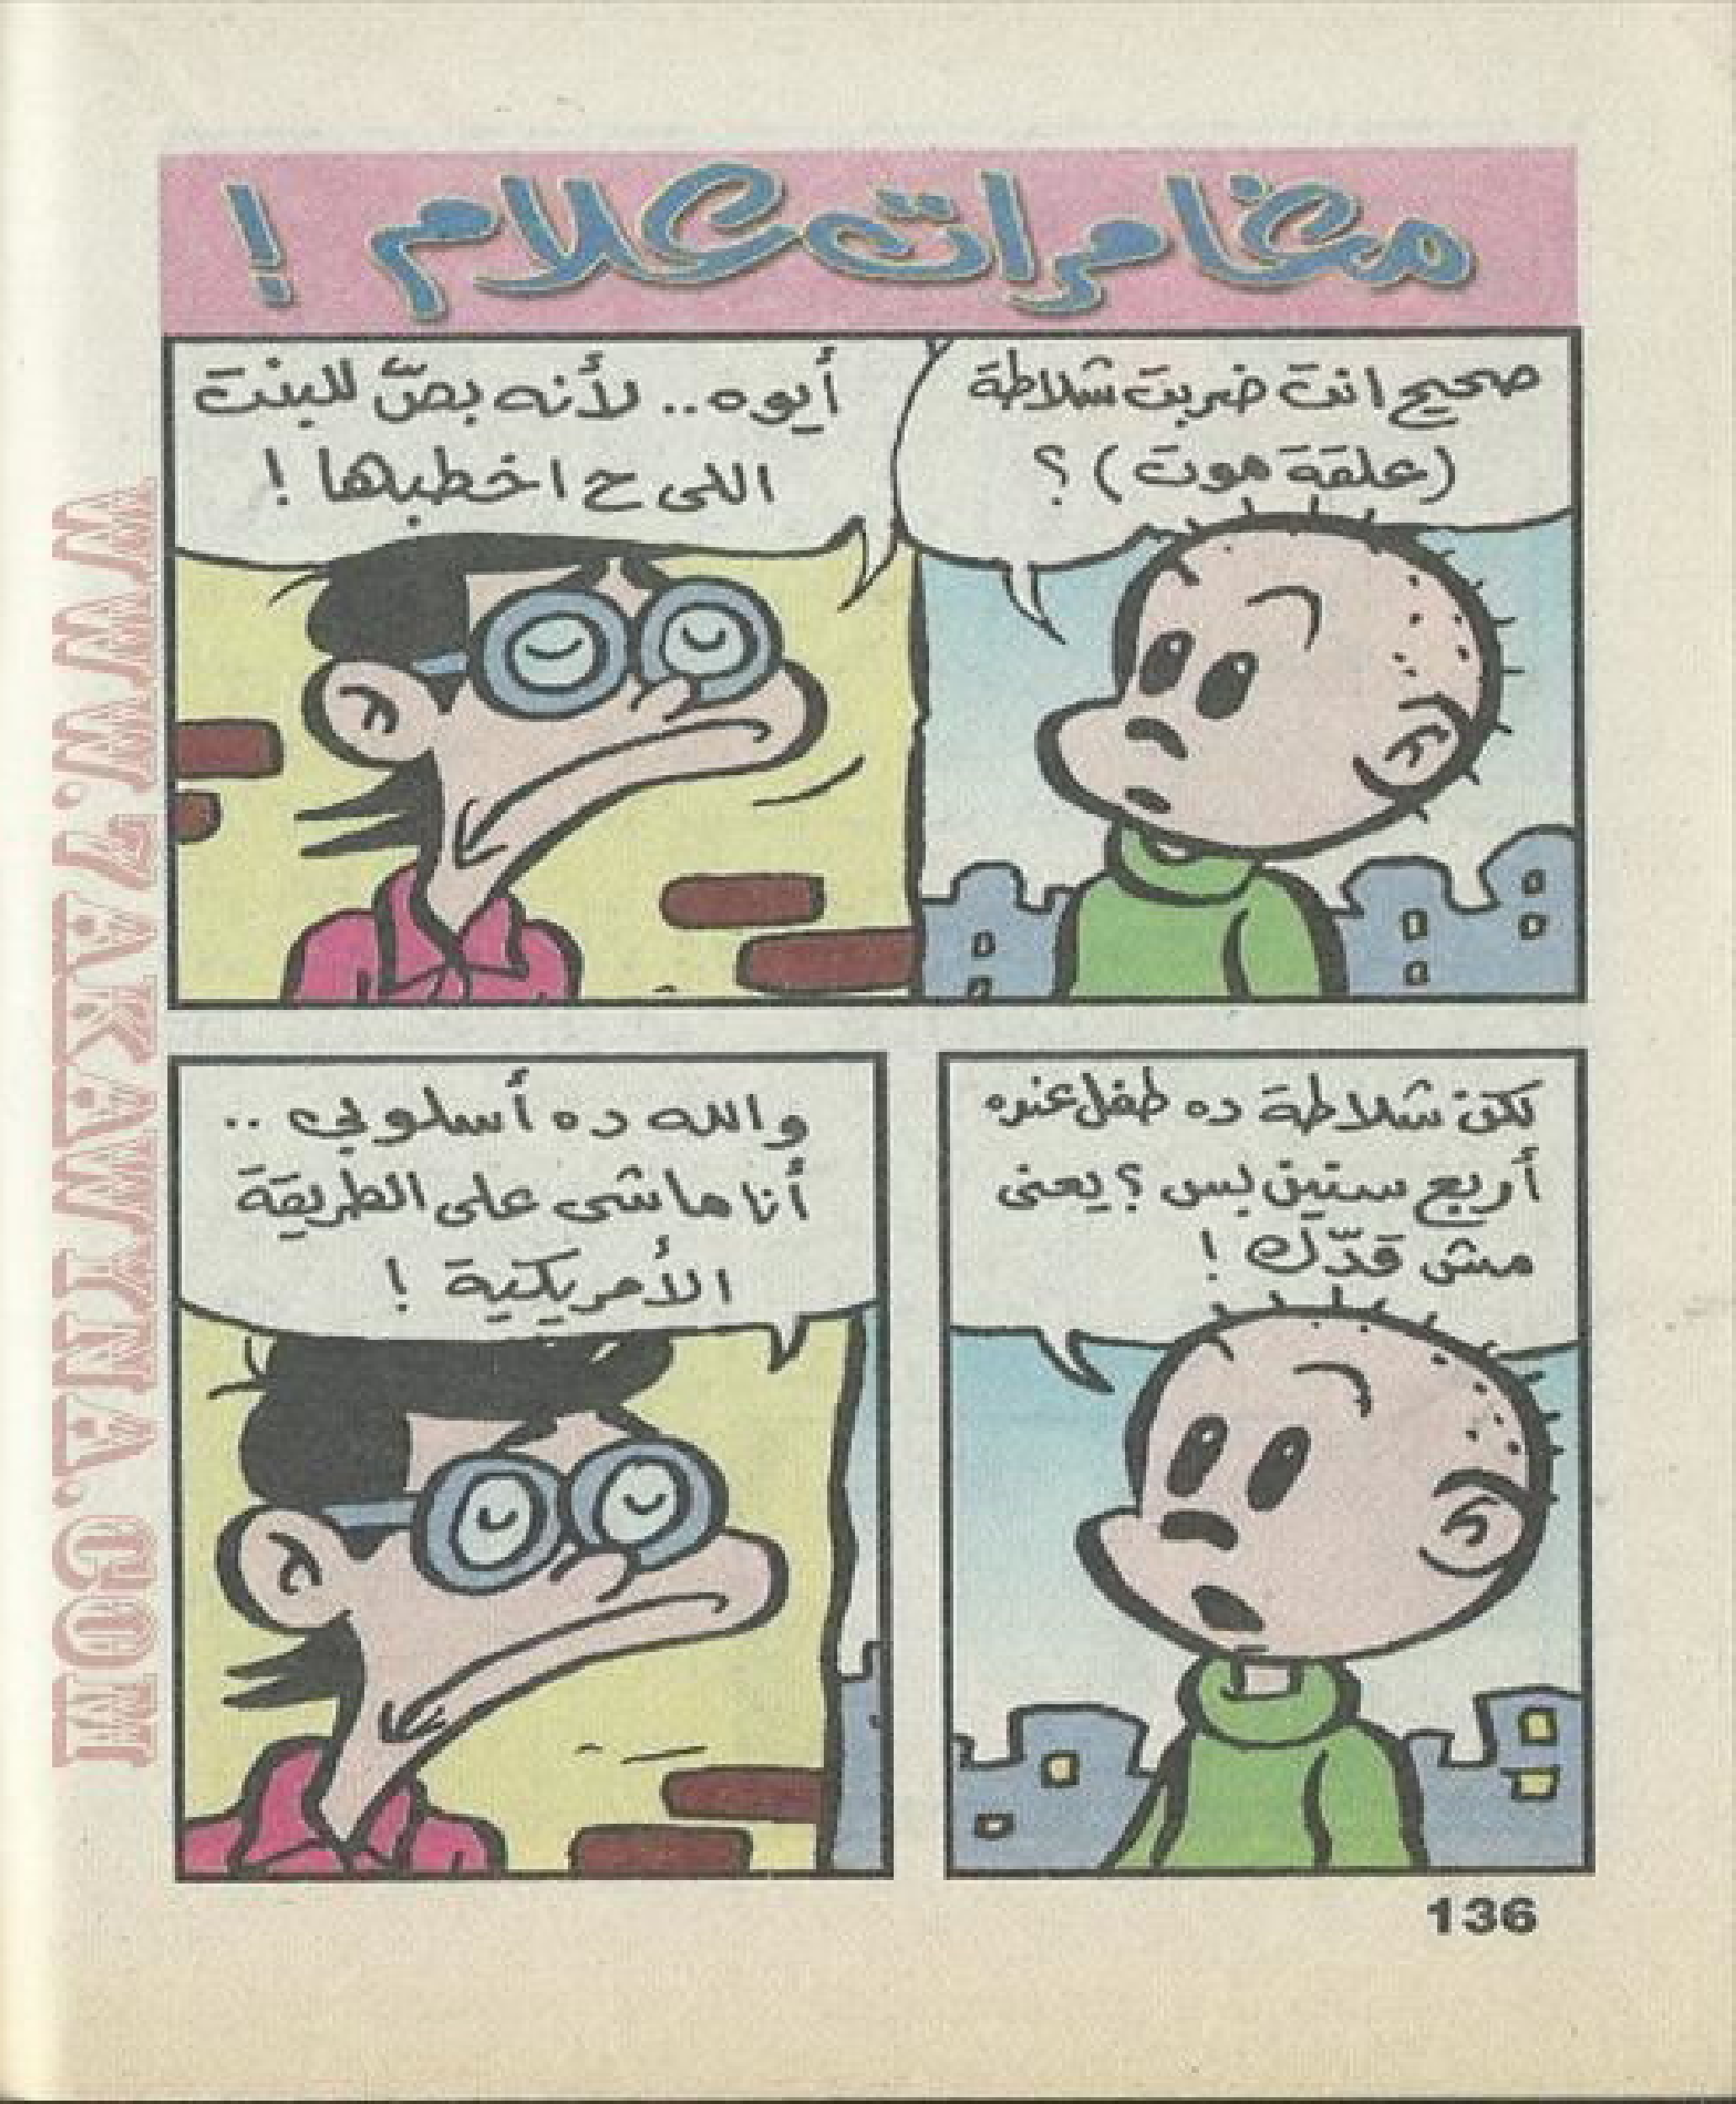 مغامرات علام !
صحيح انت ضربت شلاطة
(علقة موت) ؟
أيوه.. لأنه بصّ للبنت
اللى ح اخطبها !
لكن شلاطة ده طفل عنده
أربع سنين بس ؟ يعنى
مش قدّك !
والله ده أسلوبي ..
أنا ماشى على الطريقة
الأمريكية !
136
WWW.7AKAWITNA.COM